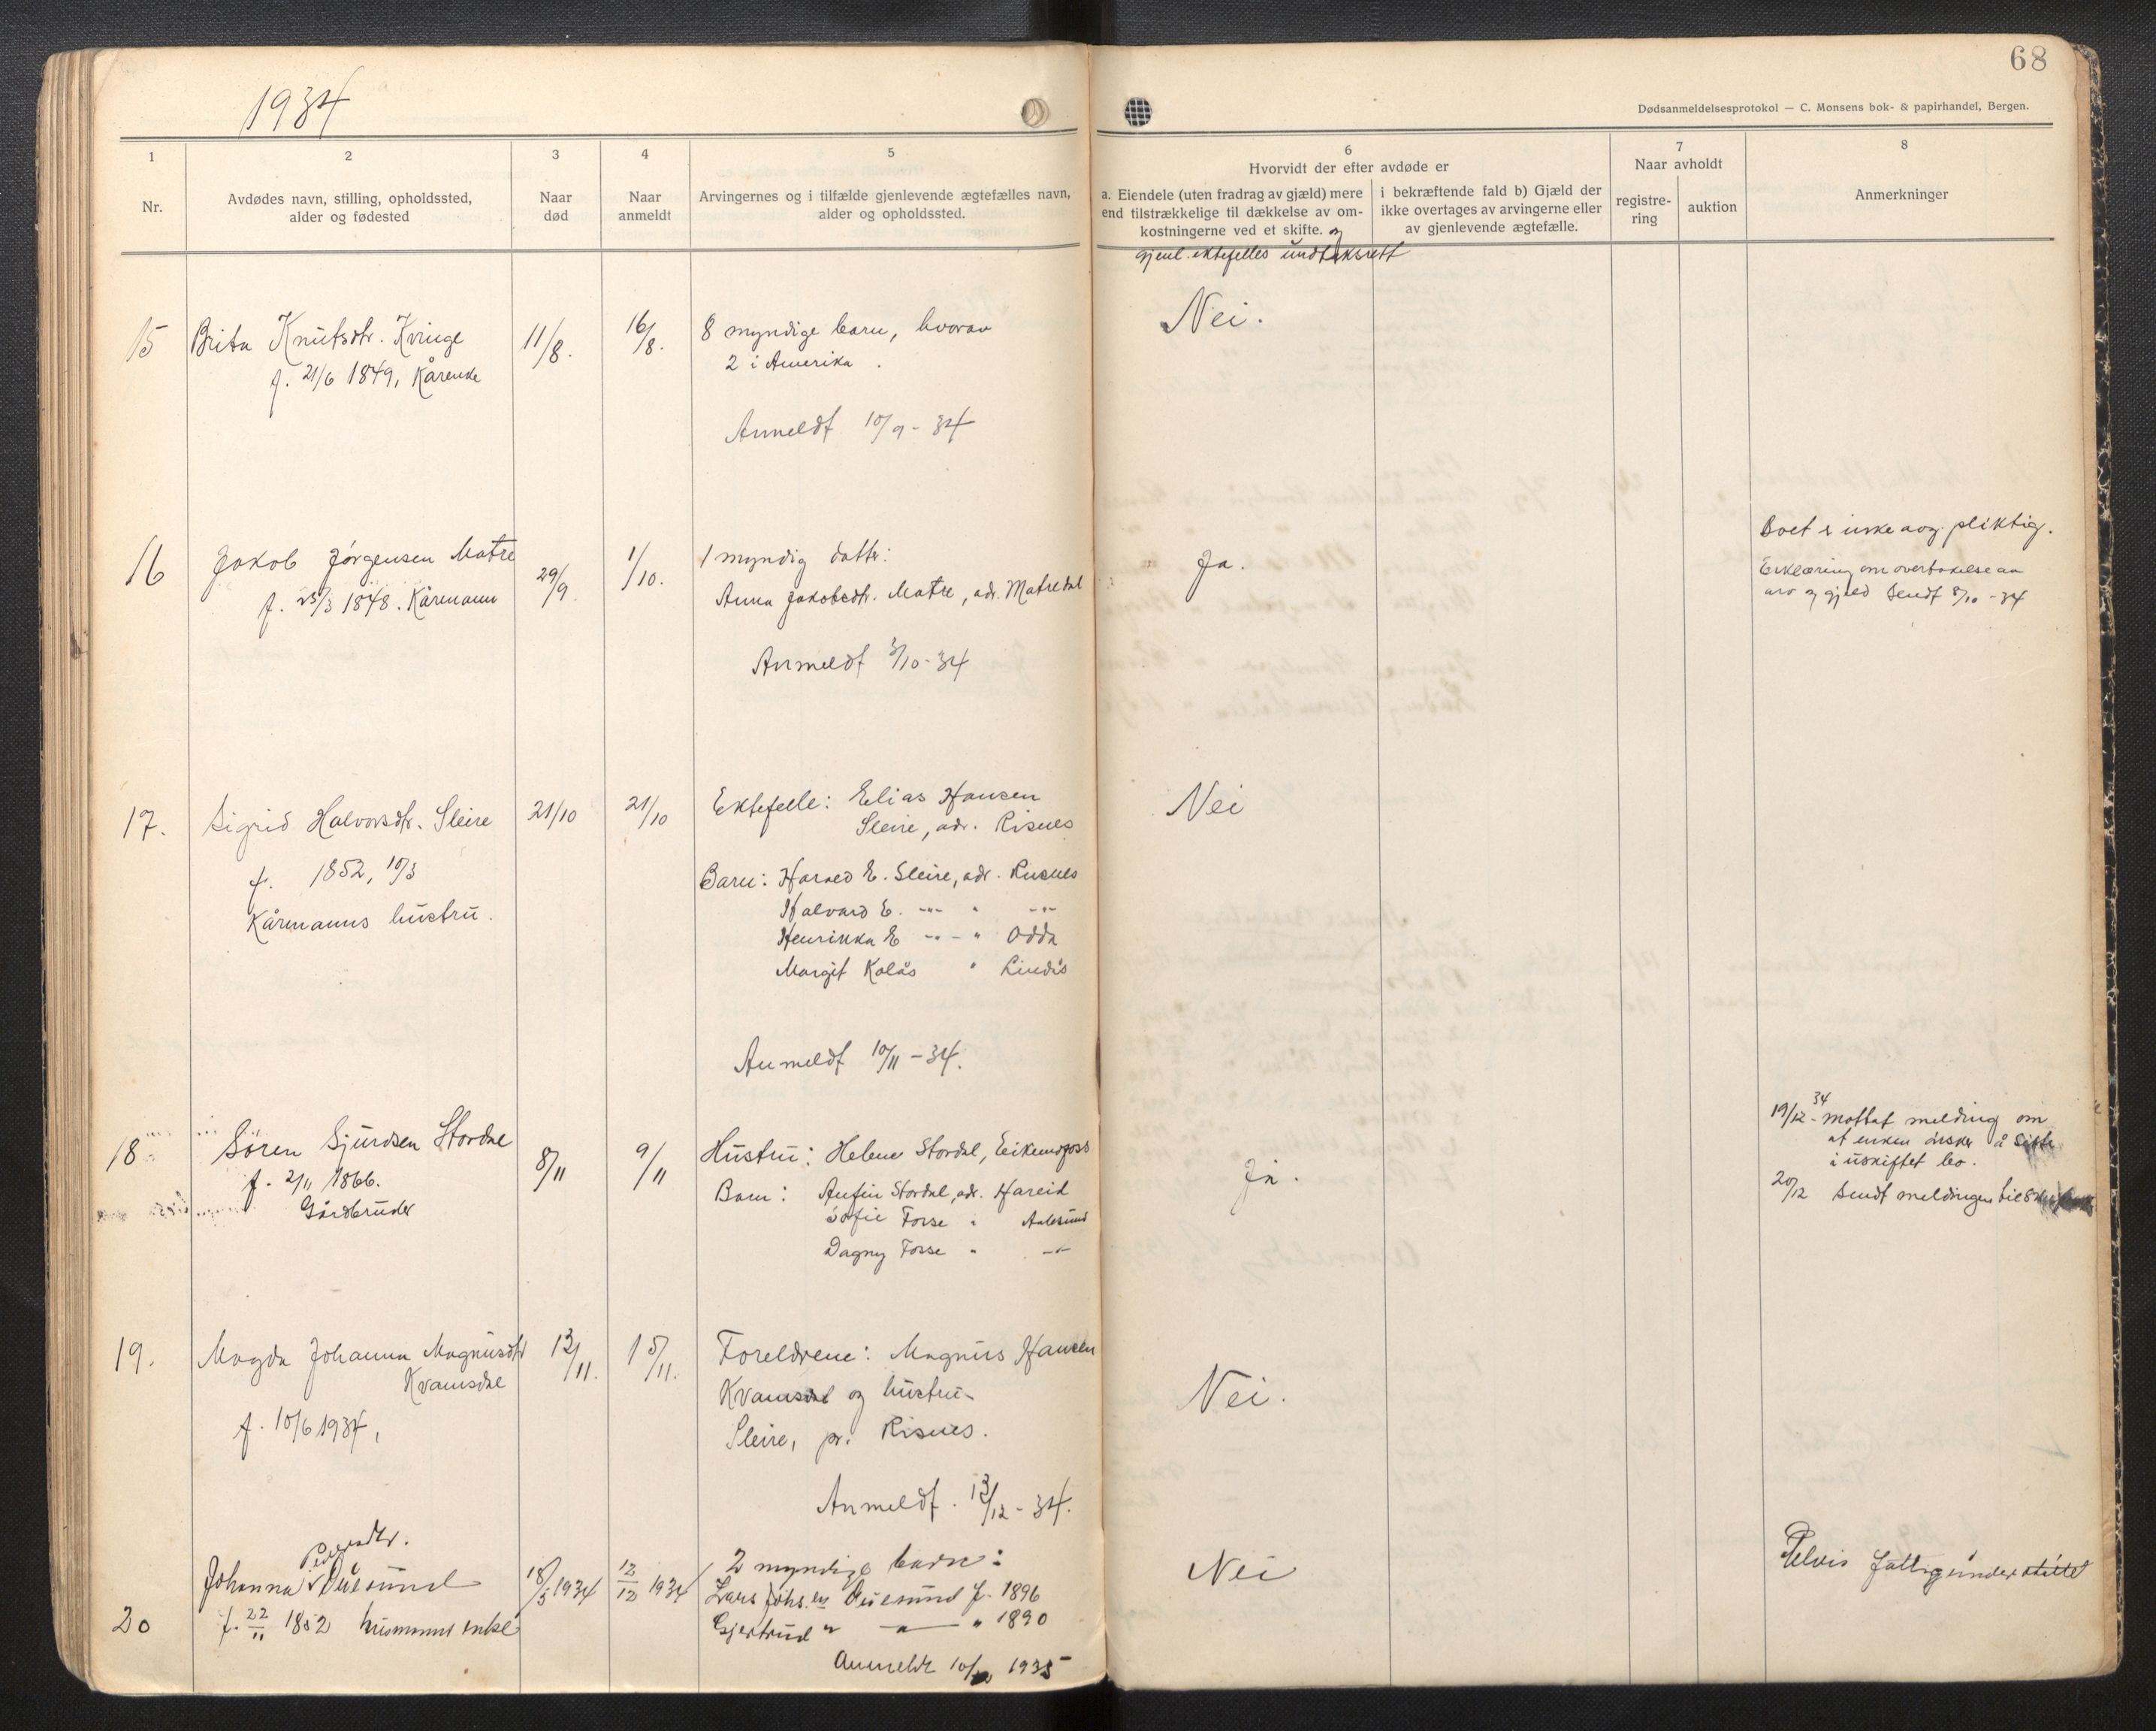 68
1934
Dødsanmeldelsesprotokol — C. Monsens bok- & papirhandel, Bergen.
1
2
3
4
5
6
7
8
Nr.
Avdødes navn, stilling, opholdssted,
alder og fødested
Naar
død
Naar
anmeldt
Arvingernes og i tilfælde gjenlevende ægtefælles navn,
alder og opholdssted.
Hvorvidt der efter avdøde er
a. Eiendele (uten fradrag av gjæld) mere
end tilstrækkelige til dækkelse av om-
kostningerne ved et skifte. og
gjenl. ektefelles undtaksrett
i bekræftende fald b) Gjæld der
ikke overtages av arvingerne eller
av gjenlevende ægtefælle.
Naar avholdt
registre-
ring
auktion
Anmerkninger
15
Brita Knutsdtr. Kvinge
f. 21/6 1849, Kårenke
11/8.
16/8.
8 myndige barn, hvorav
2 i Amerika.
Anmeldt 10/9 - 34
Nei.
16
Jakob Jørgensen Matre
f. 23/3 1848. Kårmann
29/9
1/10.
1 myndig datter:
Anna Jakobsdtr. Matre, adr. Matredal
Anmeldt 3/10 - 34
Ja.
Boet er ikke pliktig.
Erklæring om overtakelse av
arv og gjeld sendt 8/10 - 34
17.
Sigrid Halvorsdtr. Sleire
f. 1852, 10/3
Kårmanns hustru.
21/10
21/10
Ektefelle: Elias Hansen
Sleire, adr. Risnes
Barn: Harald E. Sleire, adr. Risnes
Halvard E. -"- " -"-
Henrikka E -"- " Odda
Margit Kolås " Lindås
Anmeldt 10/11 - 34.
Nei
18
Søren Sjurdsen Stordal
f. 2/11 1866.
Gårdbruker
8/11
9/11
Hustru: Helene Stordal, Eikemofoss
Barn: Anfin Stordal, adr. Hareid
Sofie Forse " Aalesund
Dagny Forse " -"-
Ja.
19/12-34 mottat melding om
at enken ønsker å sitte
i uskiftet bo.
20/12 Sendt meldingen til
19.
Magda Johanna Magnusdtr
Kvamsdal
f. 10/6 1934,
13/11.
15/11.
Foreldrene: Magnus Hansen
Kvamsdal og hustru -
Sleire, pr. Risnes.
Anmeldt. 13/12 - 34.
Nei.
20
Pedersdtr.
Johanna v Duesund
f. 22/11 1852 husmanns enke
18/5 1934
12/12 1934
2 myndige barn:
Lars Johs.en Duesund f. 1896
Gjertrud " — " — " 1890
Anmeldt 10/ 1935
Nei
Delvis fattigunderstøttet